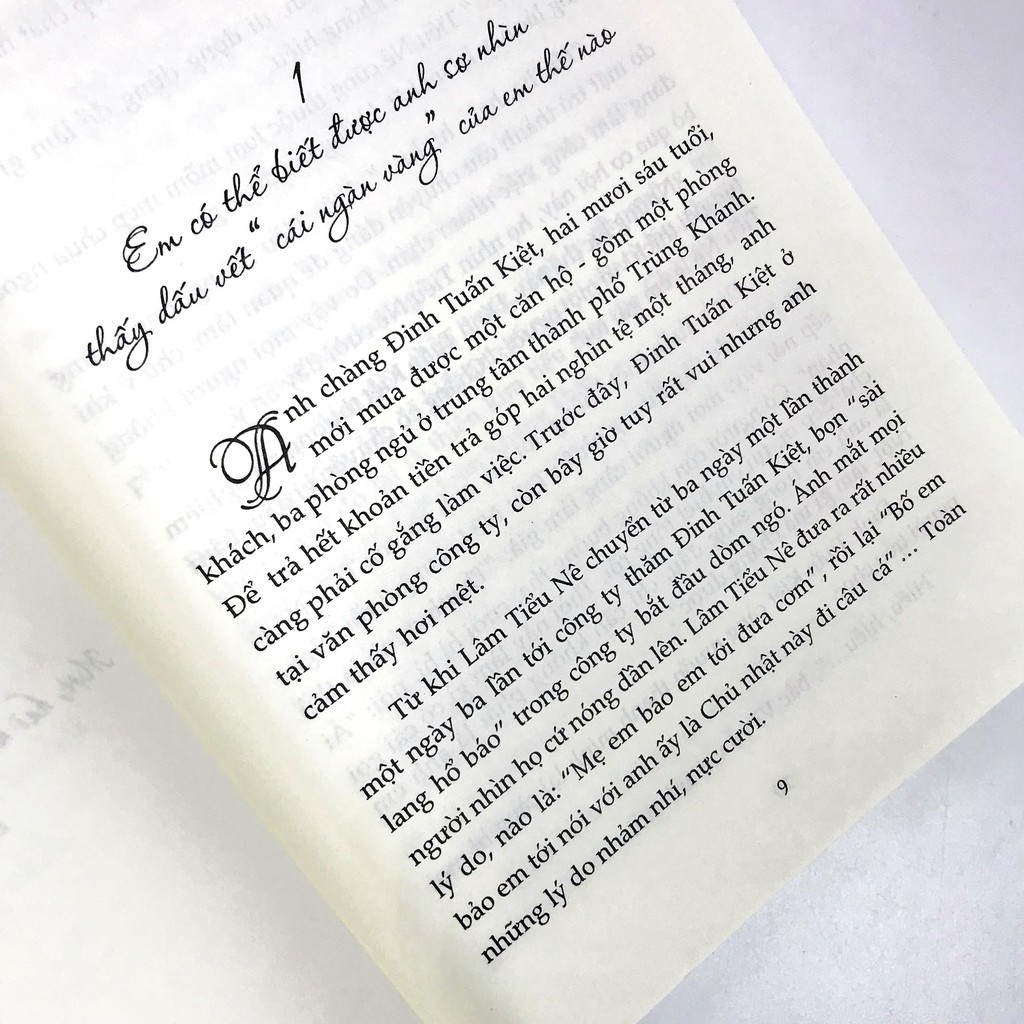 1
Em có thể biết được anh sợ nhìn
thấy dấu vết “cái ngàn vàng” của em thế nào
Anh chàng Đinh Tuấn Kiệt, hai mươi sáu tuổi,
mới mua được một căn hộ - gồm một phòng
khách, ba phòng ngủ ở trung tâm thành phố Trùng Khánh.
Để trả hết khoản tiền trả góp hai nghìn tệ một tháng, anh
càng phải cố gắng làm việc. Trước đây, Đinh Tuấn Kiệt ở
tại văn phòng công ty, còn bây giờ tuy rất vui nhưng anh
cảm thấy hơi mệt.
Từ khi Lâm Tiểu Nê chuyển từ ba ngày một lần thành
một ngày ba lần tới công ty thăm Đinh Tuấn Kiệt, bọn “sài
lang hổ báo” trong công ty bắt đầu dòm ngó. Ánh mắt mọi
người nhìn họ cứ nóng dần lên. Lâm Tiểu Nê đưa ra rất nhiều
lý do, nào là: “Mẹ em bảo em tới đưa cơm”, rồi lại “Bố em
bảo em tới nói với anh ấy là Chủ nhật này đi câu cá”... Toàn
những lý do nhảm nhí, nực cười.
9